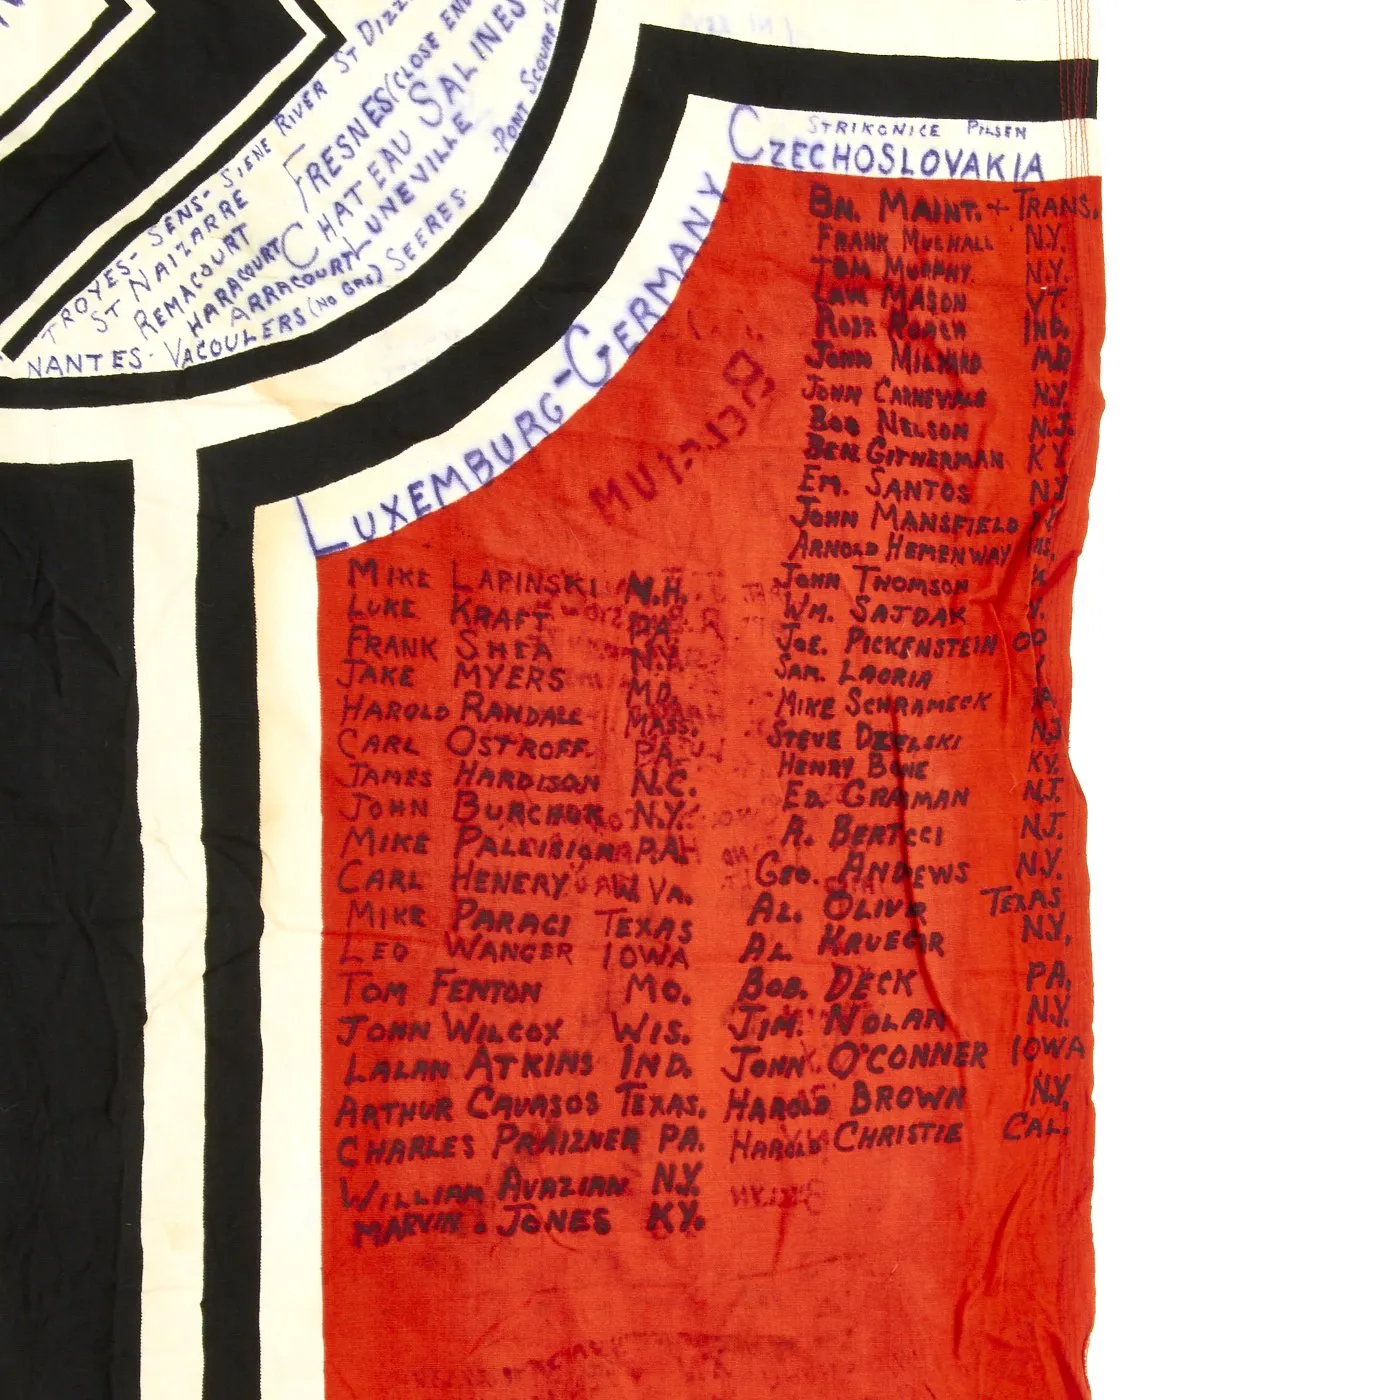 ST DIZZ
SIENE RIVER
TROYES- SENS-
ST NAIZARRE
REMACOURT
HARACOURT
ARRACOURT
NANTES- VACOULERS (NO GAS) SEERES.
FRESNES (CLOSE EN
CHATEAU SALINES
LUNEVILLE
PONT SCOURF
STRIKONICE PILSEN
CZECHOSLOVAKIA
LUXEMBURG-GERMANY
BN. MAINT. + TRANS.
FRANK MULHALL N.Y.
TOM MURPHY. N.Y.
MASON VT.
ROBT ROACH IND.
JOHN MILNARD MD
JOHN CARNEVALE N.Y.
BOB NELSON N.J.
BEN. GITHERMAN KY
EM. SANTOS N.Y
JOHN MANSFIELD
ARNOLD HEMENWAY
JOHN THOMSON
WM. SAJDAK
JOE. PICKENSTEIN
SAM. LAORIA
MIKE SCHRAMECK
STEVE DZELSKI N.J
HENRY BONE KY.
ED. GRAMAN N.J.
A. BERTCCI N.J.
GEO. ANDEWS N.Y.
AL. OLIVR TEXAS
AL KRUEGR N.Y.
BOB. DECK PA.
JIM. NOLAN N.Y.
JOHN O'CONNER IOWA
HAROLD BROWN N.Y.
HAROLD CHRISTIE CAL.
MIKE LAPINSKI N.H.
LUKE KRAFT PA.
FRANK SHEA N.Y.
JAKE MYERS MD.
HAROLD RANDALL MASS.
CARL OSTROFF PA.
JAMES HARDISON N.C.
JOHN BURCHOK N.Y.
MIKE PALEIBION PA.
CARL HENERY W. VA.
MIKE PARAGI TEXAS
LEO WANGER IOWA
TOM FENTON MO.
JOHN WILCOX WIS.
LALAN ATKINS IND.
ARTHUR CAVASOS TEXAS.
CHARLES PRAIZNER PA.
WILLIAM AVAZIAN N.Y.
MARVIN. JONES KY.